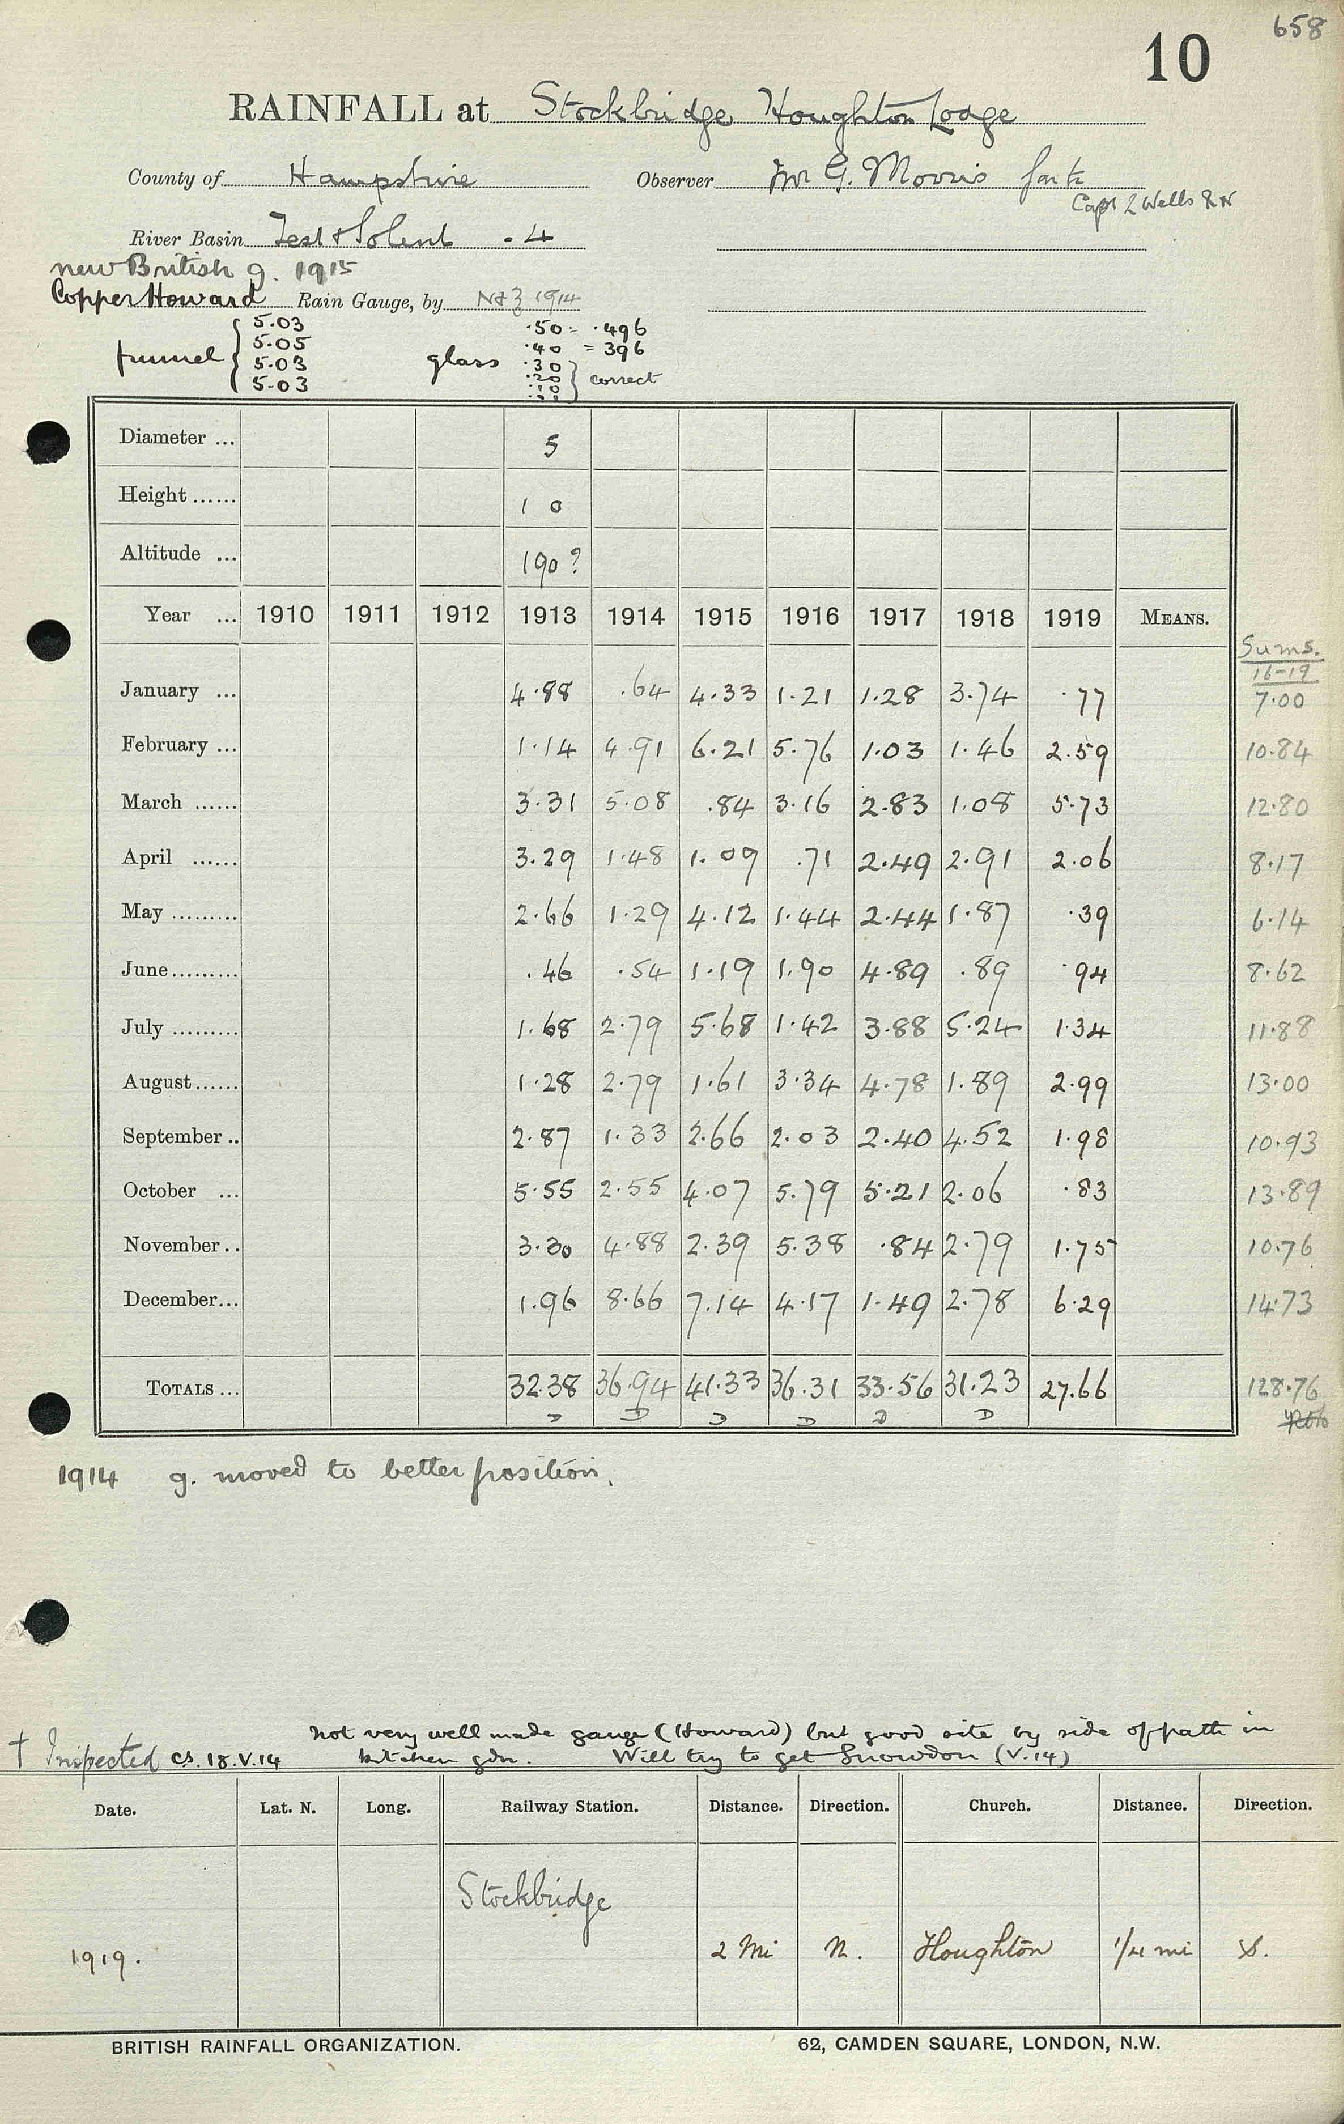 658
10
RAINFALL at Stockbridge Houghton Lodge
County of Hampshire Observer Mr G. Morris for
Capt L Wells RN
River Basin Test & Solent . 4
new British g. 1915
Copper Howard Rain Gauge, by 1914
funnel { 5.03 glass .50 = .496
5.05 .40 = 396
5.03 .30 } correct
5.03 .20
.10
Diameter ... 5
Height ...... 1 0
Altitude ... 190?
Year ... 1910 1911 1912 1913 1914 1915 1916 1917 1918 1919 MEANS. Sums. 16-19
January ... 4.88 .64 4.33 1.21 1.28 3.74 .77 7.00
February ... 1.14 4.91 6.21 5.76 1.03 1.46 2.59 10.84
March ...... 3.31 5.08 .84 3.16 2.83 1.08 5.73 12.80
April ...... 3.29 1.48 1.09 .71 2.49 2.91 2.06 8.17
May ......... 2.66 1.29 4.12 1.44 2.44 1.87 .39 6.14
June......... .46 .54 1.19 1.90 4.89 .89 .94 8.62
July ......... 1.68 2.79 5.68 1.42 3.88 5.24 1.34 11.88
August...... 1.28 2.79 1.61 3.34 4.78 1.89 2.99 13.00
September .. 2.87 1.33 2.66 2.03 2.40 4.52 1.98 10.93
October ... 5.55 2.55 4.07 5.79 5.21 2.06 .83 13.89
November .. 3.30 4.88 2.39 5.38 .84 2.79 1.75 10.76
December... 1.96 8.66 7.14 4.17 1.49 2.78 6.29 14.73
TOTALS ... 32.38 36.94 41.33 36.31 33.56 31.23 27.66 128.76
1914 g. moved to better position.
Not very well made gauge (Howard) but good site by side of path in
† Inspected CS. 18.V.14 kitchen gdn. Will try to get Snowdon (V.14)
Date. Lat. N. Long. Railway Station. Distance. Direction. Church. Distance. Direction.
Stockbridge
1919. 2 Mi N. Houghton 1/4 mi S.
BRITISH RAINFALL ORGANIZATION. 62, CAMDEN SQUARE, LONDON, N.W.